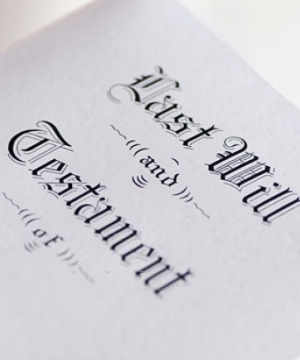 Last Will
(((and)))
Testament
(((of)))